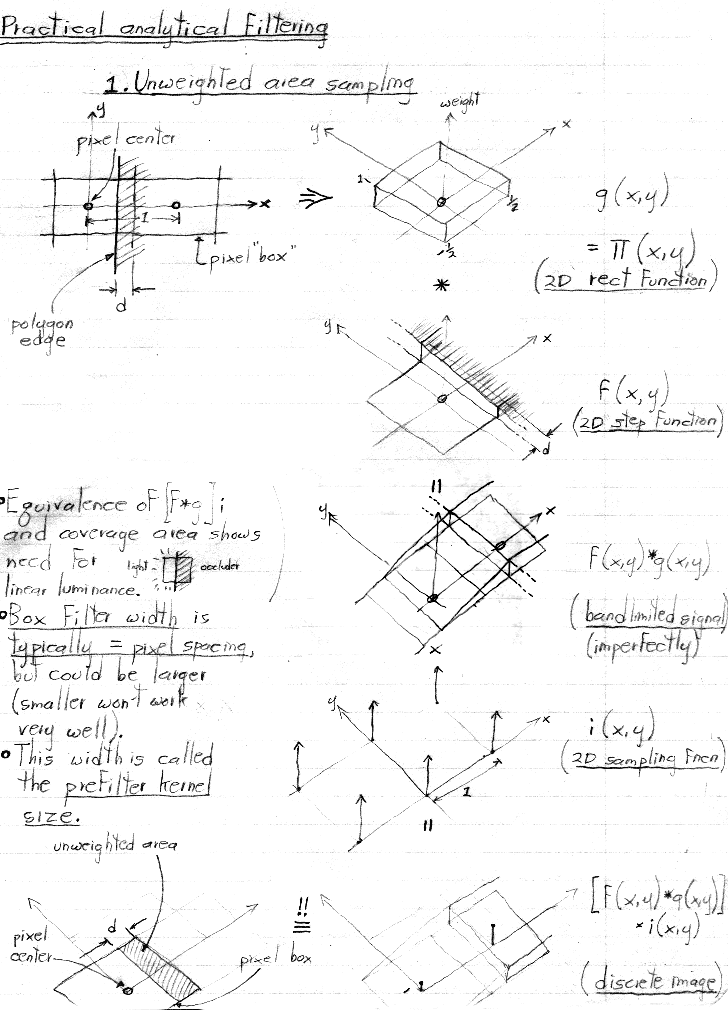 Practical analytical Filtering
1. Unweighted area sampling
y
pixel center
x
1
pixel "box"
d
polygon
edge
⇒
weight
y
x
1
1/2
-1/2
g(x,y)
= Π(x,y)
(2D rect Function)
*
y
x
d
F(x,y)
(2D step Function)
• Equivalence of [F*g] i
and coverage area shows
need For
light
occluder
linear luminance.
• Box Filter width is
typically = pixel spacing,
but could be larger
(smaller won't work
very well).
• This width is called
the preFilter kernel
size.
=
y
x
F(x,y)*g(x,y)
(bandlimited signal)
(imperfectly)
x
y
x
1
=
i(x,y)
(2D sampling Fncn)
unweighted area
d
pixel
center
pixel box
!!
≡
1
[F(x,y)*g(x,y)]
• i(x,y)
(discrete image)